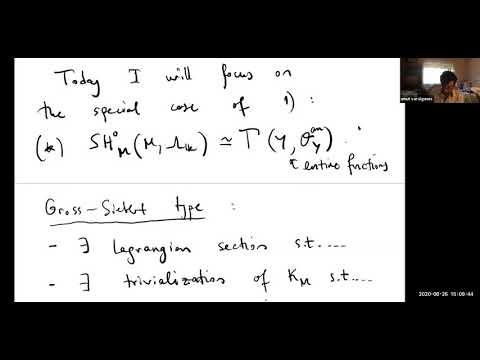 Today I will focus on
the special case of 1) :
(*) SH⁰_M(M, Λ_𝕜) ≃ Γ(Y, 𝒪_Y^an) .
entire functions
Gross-Siebert type :
- ∃ Lagrangian section s.t....
- ∃ trivialization of K_M s.t....
2020-08-26 15:09:44